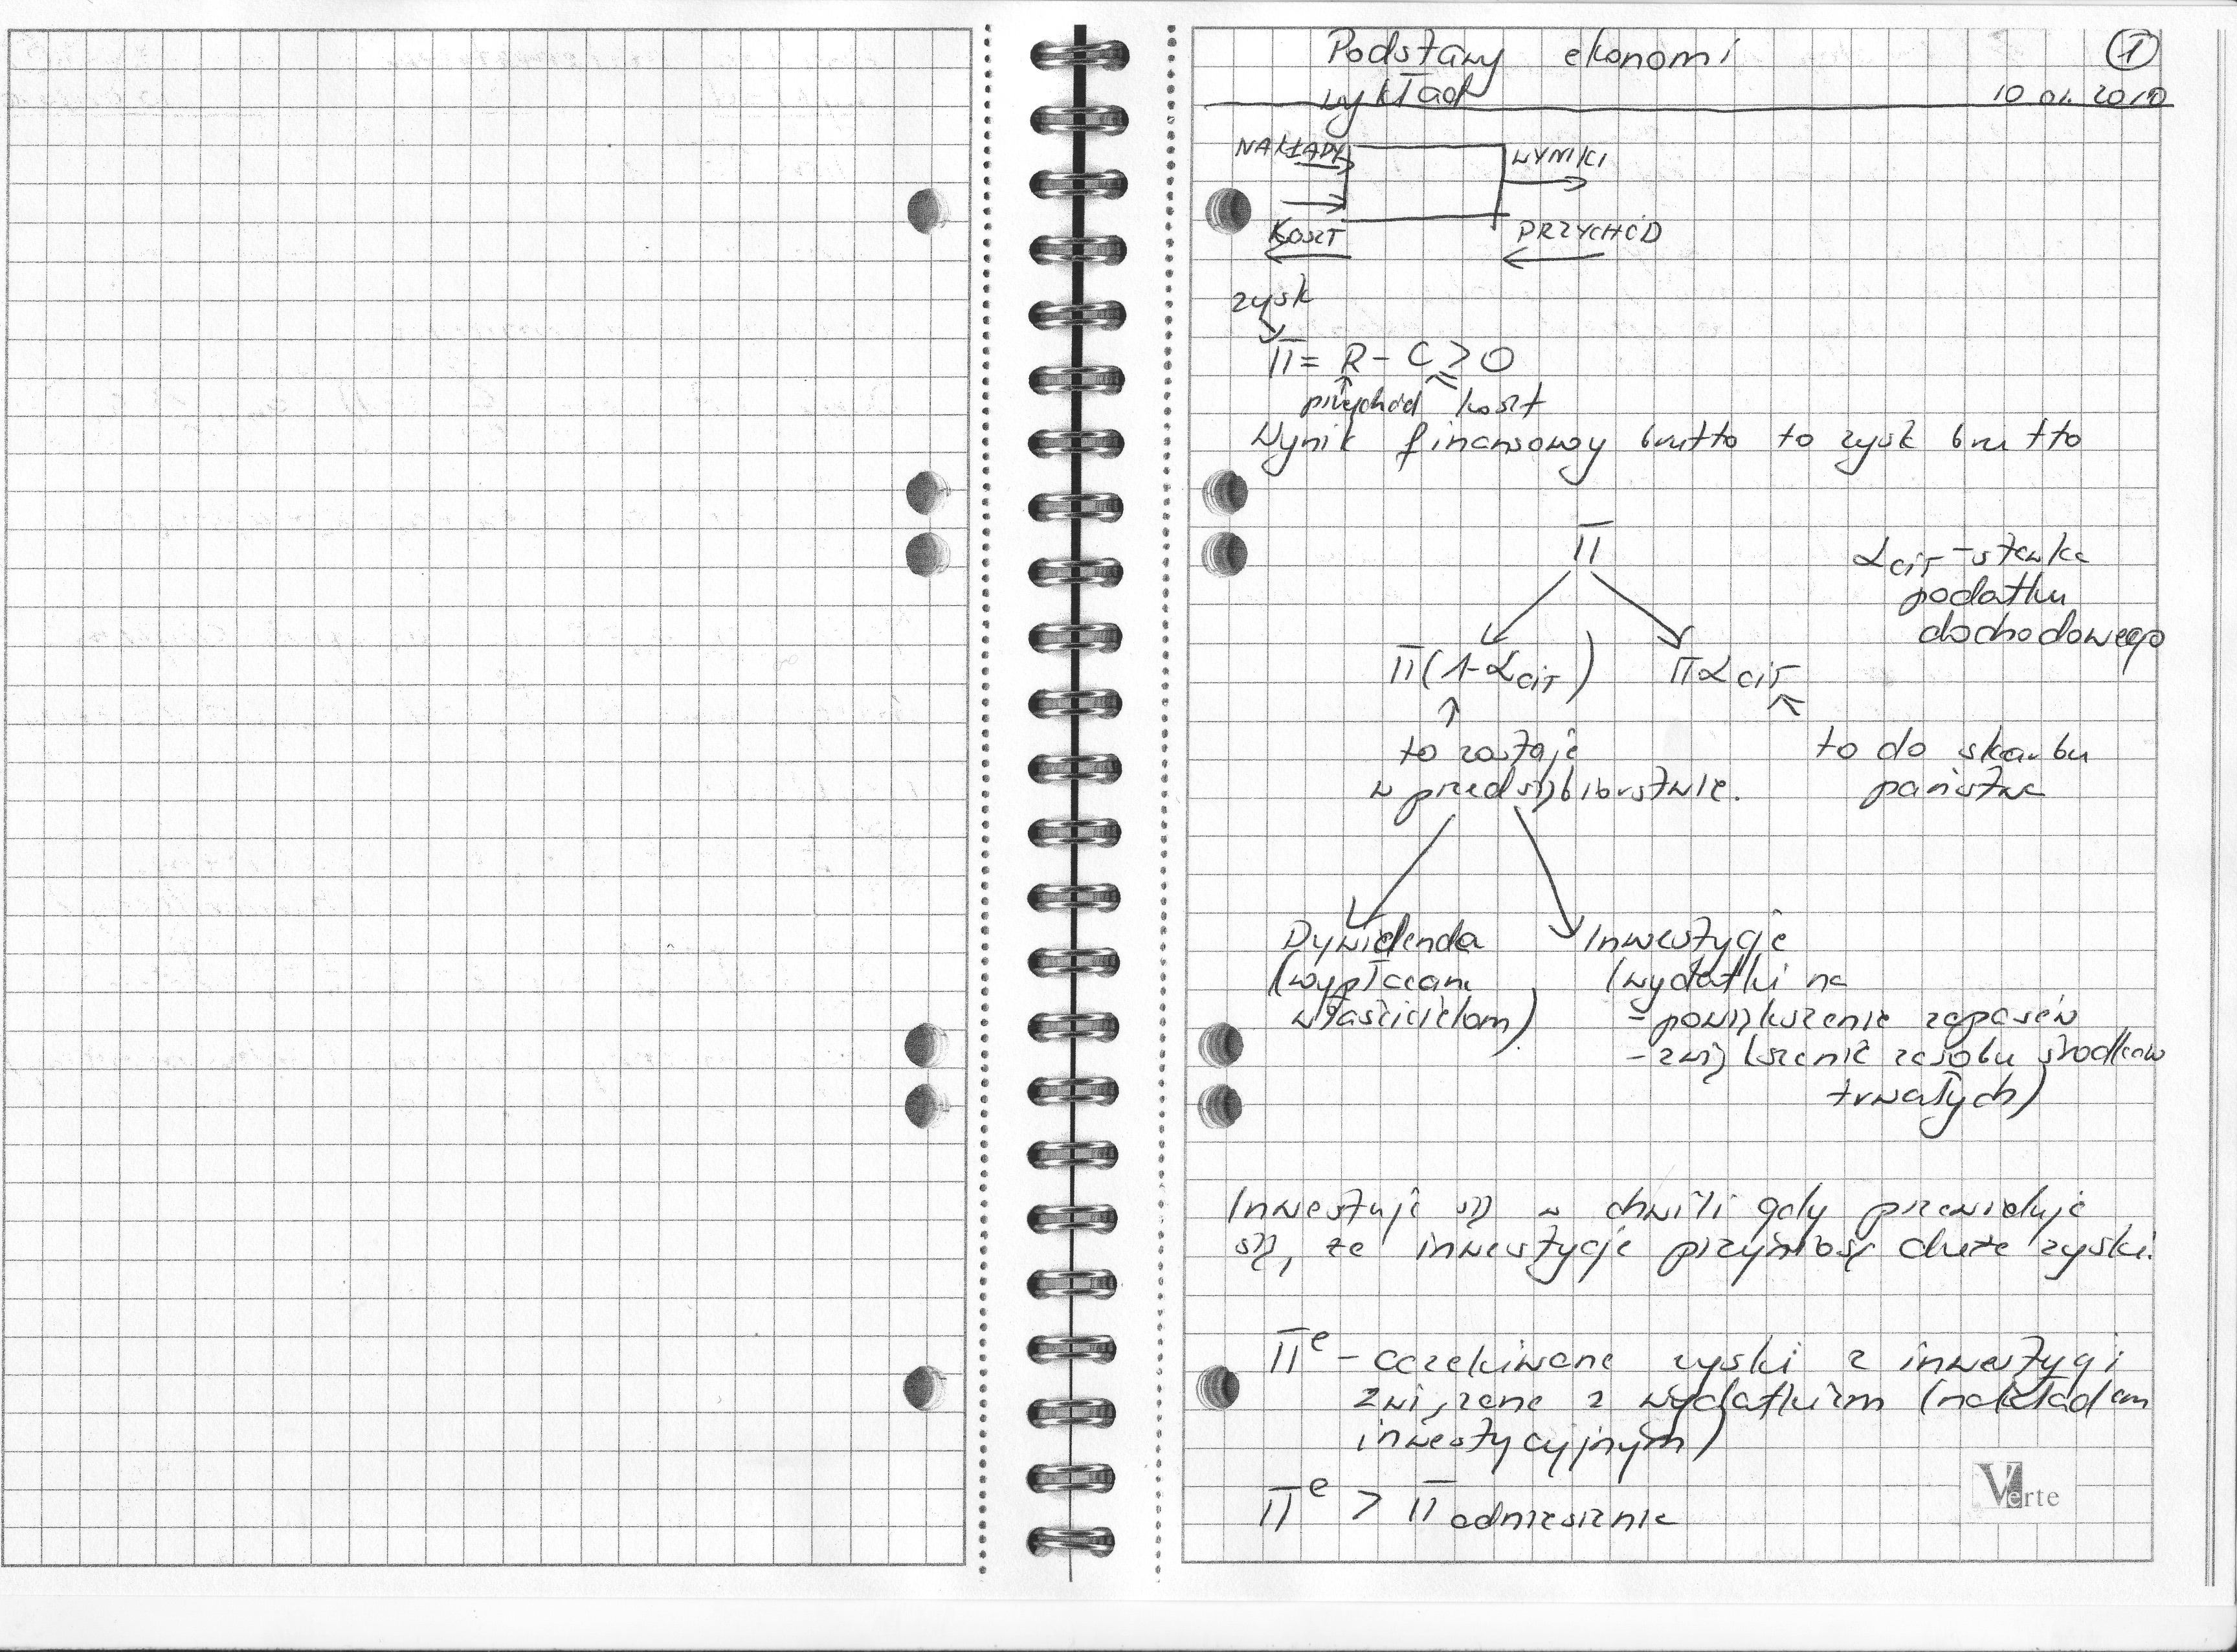 Podstawy ekonomi
1
wykład
10 01. 2010
NAKŁADY
WYNIKI
KOSZT
PRZYCHÓD
zysk
Π = R - C ≥ 0
przychód koszt
Wynik finansowy brutto to zysk brutto
Π
αCIT - stawka
podatku
dochodowego
Π(1-αCIT) ΠαCIT
to zostaje
w przedsiębiorstwie.
to do skarbu
państwa
Dywidenda
(wypłacana
właścicielom)
Inwestycje
(wydatki na
- powiększenie zapasów
- zwiększenie zasobu środków
trwałych)
Inwestuje się w chwili gdy przewiduje
się, że inwestycje przyniosą duże zyski.
Π^e - oczekiwane zyski z inwestycji
związane z wydatkiem (nakładem
inwestycyjnym)
Π^e > Π odniesienie
Verte